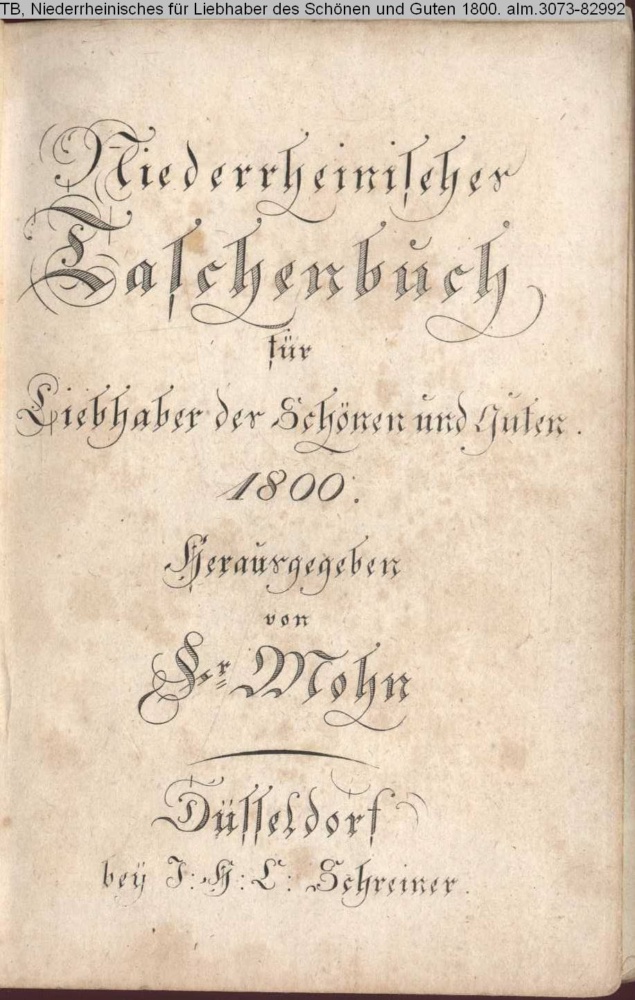 TB, Niederrheinisches für Liebhaber des Schönen und Guten 1800. alm.3073-82992
Niederrheinischer
Taschenbuch
für
Liebhaber des Schönen und Guten.
1800.
Herausgegeben
von
Fr. Mohn
Düsseldorf
bey J: H: C: Schreiner.